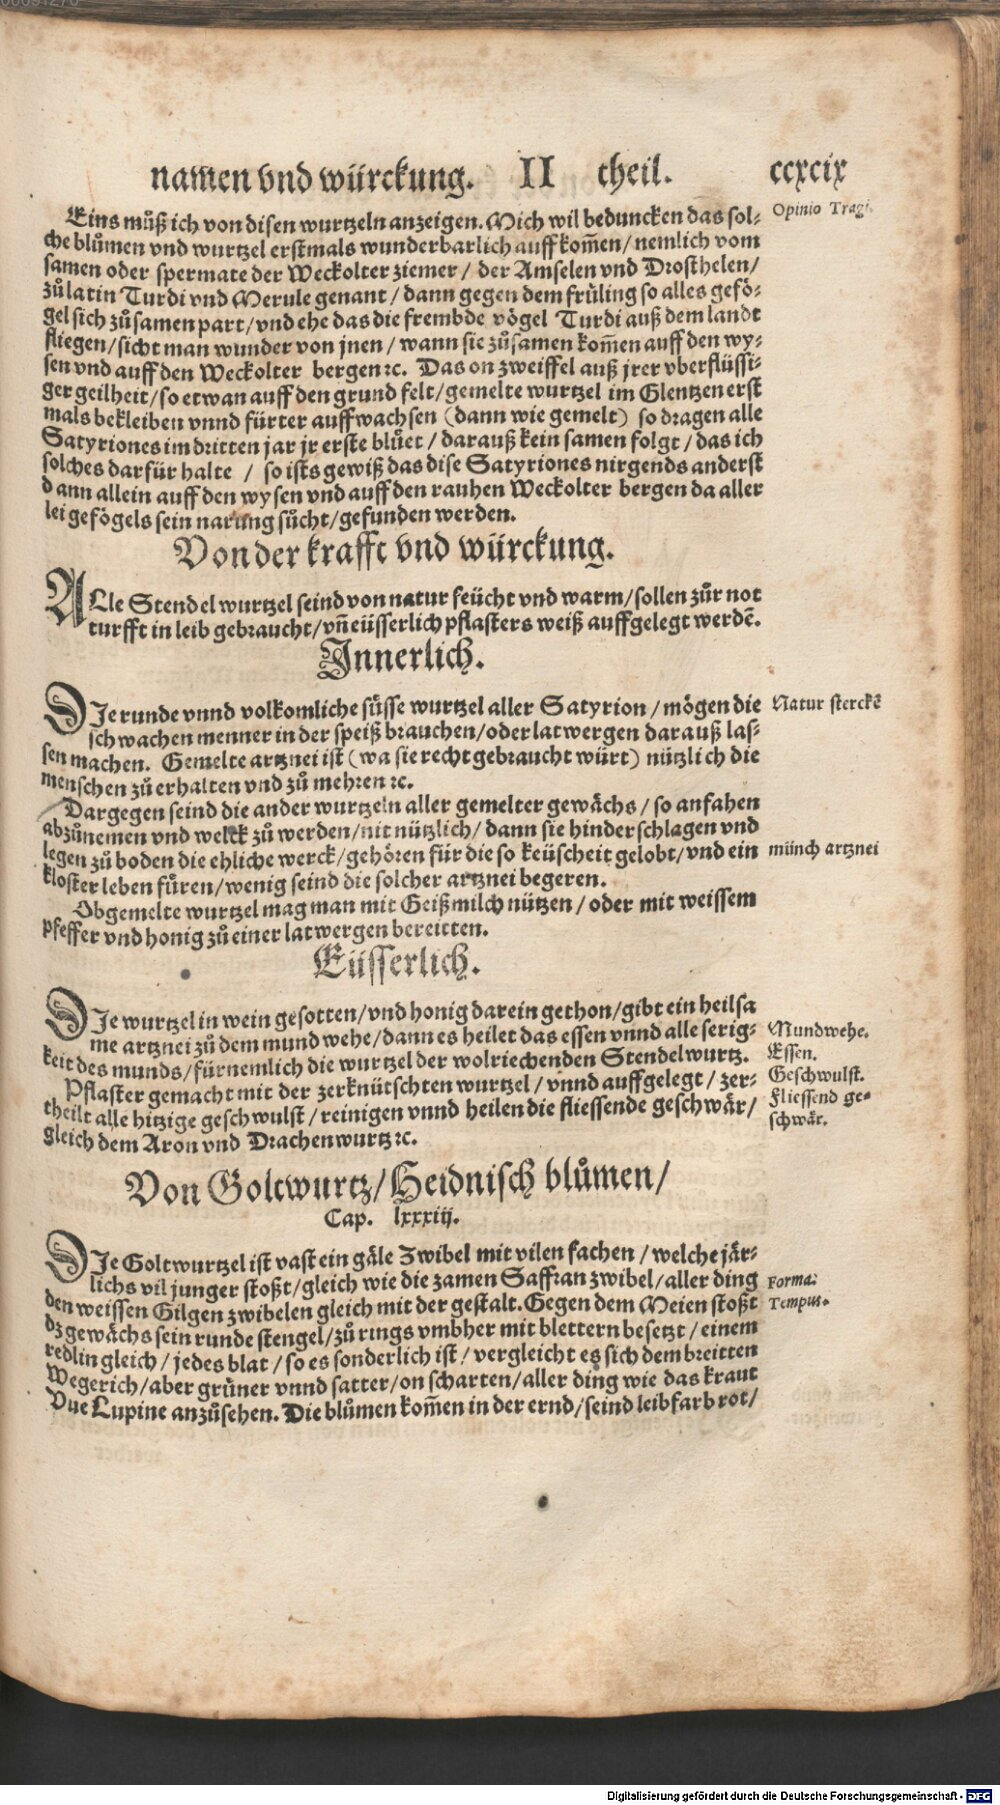 namen vnd würckung. II theil. ccxcix
Eins můß ich von disen wurtzeln anzeigen. Mich wil beduncken das sol⸗ Opinio Tragi.
che blůmen vnd wurtzel erstmals wunderbarlich auffkom̃en/ nemlich vom
samen oder spermate der Weckolter ziemer / der Amselen vnd Drosthelen/
zů latin Turdi vnd Merule genant / dann gegen dem frůling so alles gefö⸗
gel sich zůsamen part/ vnd ehe das die frembde vögel Turdi auß dem landt
fliegen/ sicht man wunder von jnen / wann sie zůsamen kom̃en auff den wy⸗
sen vnd auff den Weckolter bergen ⁊c. Das on zweiffel auß jrer vberflüssi⸗
ger geilheit/ so etwan auff den grund felt/ gemelte wurtzel im Glentzen erst
mals bekleiben vnnd fürter auffwachsen (dann wie gemelt) so dragen alle
Satyriones im dritten jar jr erste blůet / darauß kein samen folgt / das ich
solches darfür halte / so ists gewiß das dise Satyriones nirgends anderst
dann allein auff den wysen vnd auff den rauhen Weckolter bergen da aller
lei gefögels sein narung sůcht/ gefunden werden.
Von der krafft vnd würckung.
ALle Stendelwurtzel seind von natur feücht vnd warm/ sollen zůr not
turfft in leib gebraucht/ vñ eüsserlich pflasters weiß auffgelegt werdẽ.
Innerlich.
DIe runde vnnd volkomliche sůsse wurtzel aller Satyrion / mögen die Natur sterckẽ
schwachen menner in der speiß brauchen/ oder latwergen darauß las⸗
sen machen. Gemelte artznei ist (wa sie recht gebraucht würt) nützlich die
menschen zů erhalten vnd zů mehren ⁊c.
Dargegen seind die ander wurtzeln aller gemelter gewächs / so anfahen
abzůnemen vnd welck zů werden/ nit nützlich / dann sie hinderschlagen vnd
legen zů boden die ehliche werck/ gehören für die so keüscheit gelobt/ vnd ein münch artznei
kloster leben fůren/ wenig seind die solcher artznei begeren.
Obgemelte wurtzel mag man mit Geißmilch nützen / oder mit weissem
pfeffer vnd honig zů einer latwergen bereitten.
Eüsserlich.
DIe wurtzel in wein gesotten/ vnd honig darein gethon/ gibt ein heilsa
me artznei zů dem mund wehe/ dann es heilet das essen vnnd alle serig⸗ Mundwehe.
keit des munds/ fürnemlich die wurtzel der wolriechenden Stendelwurtz. Essen.
Pflaster gemacht mit der zerknütschten wurtzel / vnnd auffgelegt / zer⸗ Geschwulst.
theilt alle hitzige geschwulst / reinigen vnnd heilen die fliessende geschwär/ Fliessend ge⸗
gleich dem Aron vnd Drachenwurtz ⁊c. schwär.
Von Goltwurtz/ Heidnisch blůmen/
Cap. lxxxiij.
DIe Goltwurtzel ist vast ein gäle Zwibel mit vilen fachen / welche jär⸗
lichs vil junger stoßt/ gleich wie die zamen Saffran zwibel/ aller ding Forma.
den weissen Gilgen zwibelen gleich mit der gestalt. Gegen dem Meien stoßt Tempus.
dz gewächs sein runde stengel/ zů rings vmbher mit blettern besetzt / einem
redlin gleich / jedes blat / so es sonderlich ist / vergleicht es sich dem breitten
Wegerich/ aber grůner vnnd satter/ on scharten/ aller ding wie das kraut
Vue Lupine anzůsehen. Die blůmen kom̃en in der ernd/ seind leibfarb rot/
Digitalisierung gefördert durch die Deutsche Forschungsgemeinschaft - DFG